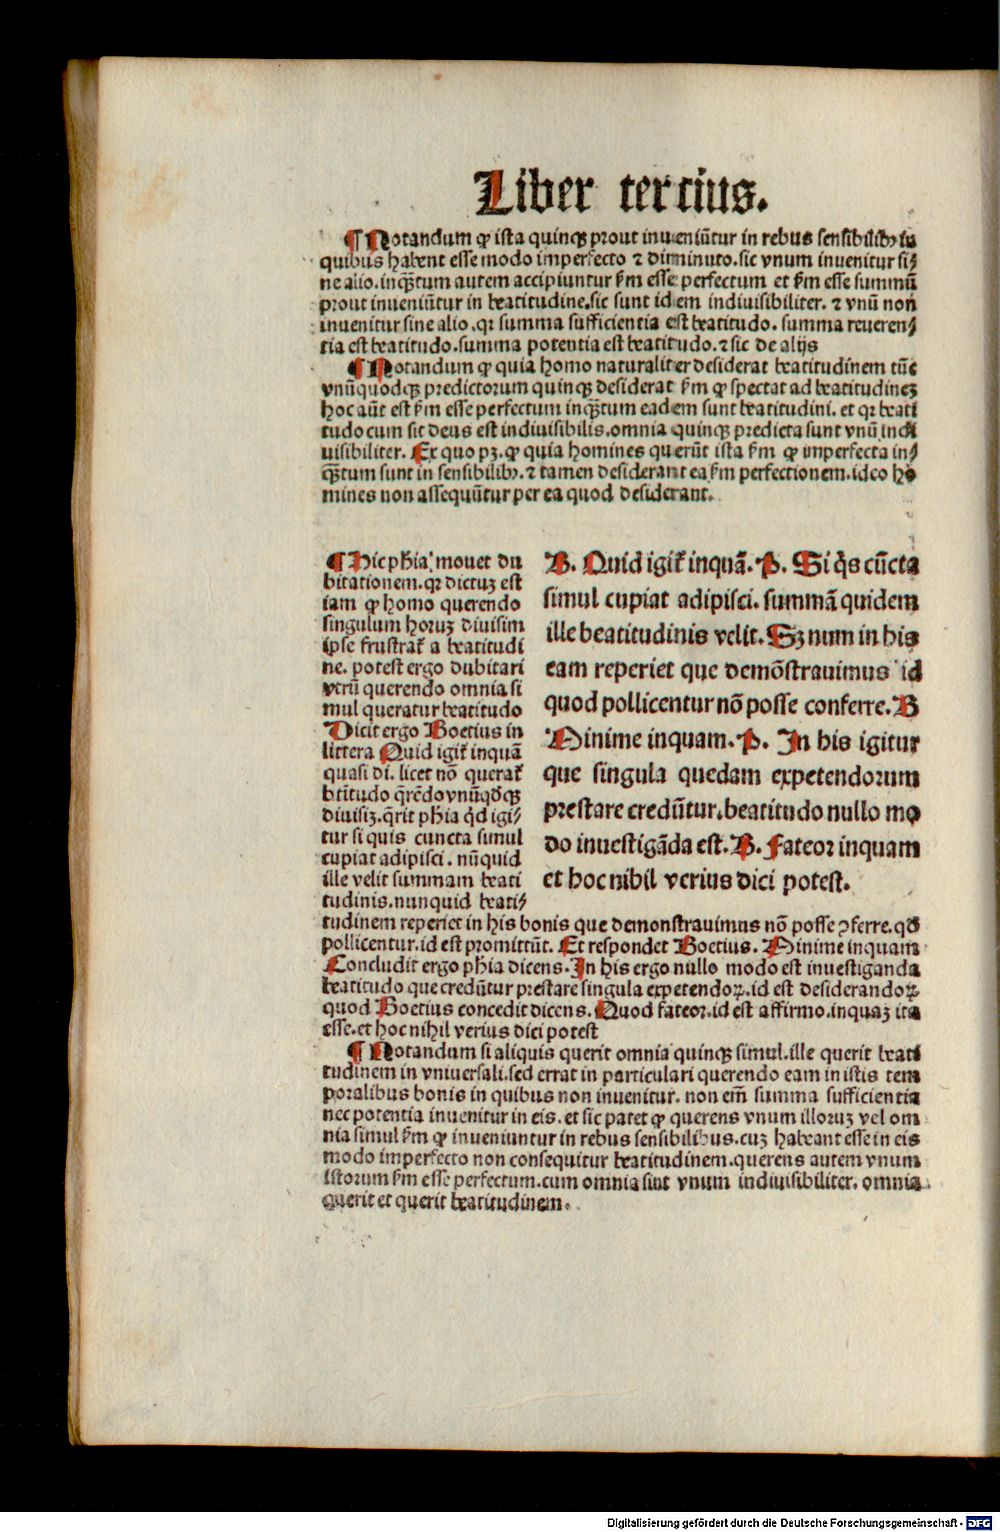 Liber tertius.
¶ Notandum ꝙ ista quinqꝫ prout inueniũtur in rebus sensibilibꝫ in
quibus habent esse modo imperfecto ⁊ diminuto.sic vnum inuenitur si⸗
ne alio.inqꝫtum autem accipiuntur ẜm esse perfectum et ẜm esse summũ
prout inueniũtur in beatitudine.sic sunt idem indiuisibiliter. ⁊ vnũ non
inuenitur sine alio.qꝛ summa sufficientia est beatitudo. summa reueren⸗
tia est beatitudo.summa potentia est beatitudo.⁊ sic de alijs
¶ Notandum ꝙ quia homo naturaliter desiderat beatitudinem tũc
vnũquodqꝫ predictorum quinqꝫ desiderat ẜm ꝙ spectat ad beatitudineꝫ
hoc aũt est ẜm esse perfectum inqꝫtum eadem sunt beatitudini. et qꝛ beati
tudo cum sit deus est indiuisibilis.omnia quinqꝫ predicta sunt vnũ indi
uisibiliter. Ex quo pꝫ.ꝙ quia homines querũt ista ẜm ꝙ imperfecta in⸗
qꝫtum sunt in sensibilibꝫ.⁊ tamen desiderant ea ẜm perfectionem.ideo ho
mines non assequũtur per ea quod desiderant.
¶ Hic phĩa mouet du
bitationem.qꝛ dictuꝫ est
iam ꝙ homo querendo
singulum horuꝫ diuisim
ipse frustrat᷑ a beatitudi
ne. potest ergo dubitari
vtrũ querendo omnia si
mul queratur beatitudo
Dicit ergo Boetius in
littera Quid igit᷑ inquã
quasi di. licet nõ querat᷑
btĩtudo q̃rẽdo vnũqđqꝫ
diuisiꝫ.q̃rit phĩa qđ igi⸗
tur si quis cuncta simul
cupiat adipisci. nũquid
ille velit summam beati
tudinis.nunquid beati⸗
B. Quid igit᷑ inquã. P. Si q̇s cũcta
simul cupiat adipisci. summã quidem
ille beatitudinis velit. Sꝫ num in his
eam reperiet que demõstrauimus id
quod pollicentur nõ posse conferre. B
Minime inquam. P. In his igitur
que singula quedam expetendorum
prestare credũtur.beatitudo nullo mo
do inuestigãda est. B. Fateor inquam
et hoc nihil verius dici potest.
tudinem reperiet in his bonis que demonstrauimus nõ posse ꝯferre.qđ
pollicentur.id est promittũt. Et respondet Boetius. Minime inquam
Concludit ergo phĩa dicens. In his ergo nullo modo est inuestiganda
beatitudo que credũtur prestare singula expetendoꝝ.id est desiderandoꝝ
quod Boetius concedit dicens. Quod fateor.id est affirmo.inquaꝫ ita
esse.et hoc nihil verius dici potest
¶ Notandum si aliquis querit omnia quinqꝫ simul.ille querit beati
tudinem in vniuersali.sed errat in particulari querendo eam in istis tem
poralibus bonis in quibus non inuenitur. non em̃ summa sufficientia
nec potentia inuenitur in eis. et sic patet ꝙ querens vnum illoruꝫ vel om
nia simul ẜm ꝙ inueniuntur in rebus sensibilibus.cuꝫ habeant esse in eis
modo imperfecto non consequitur beatitudinem.querens autem vnum
istorum ẜm esse perfectum.cum omnia sint vnum indiuisibiliter. omnia
querit et querit beatitudinem.
Digitalisierung gefördert durch die Deutsche Forschungsgemeinschaft - DFG